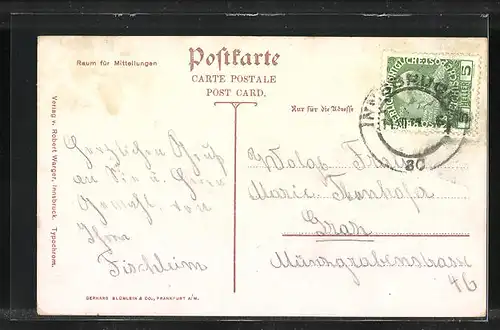 Raum für Mitteilungen
Postkarte
CARTE POSTALE
POST CARD.
Nur für die Adresse
Verlag v. Robert Warger, Innsbruck. Typochrom.
Herzlichen Gruß
an Sie u. Herrn
Gemahl, von
Ihrer
Fischleim
Wolgb. Frau
Marie
Graz
Münzgrabenstrasse
46
GERHARD BLÜMLEIN & CO., FRANKFURT A/M.
INNSBRUCK
5